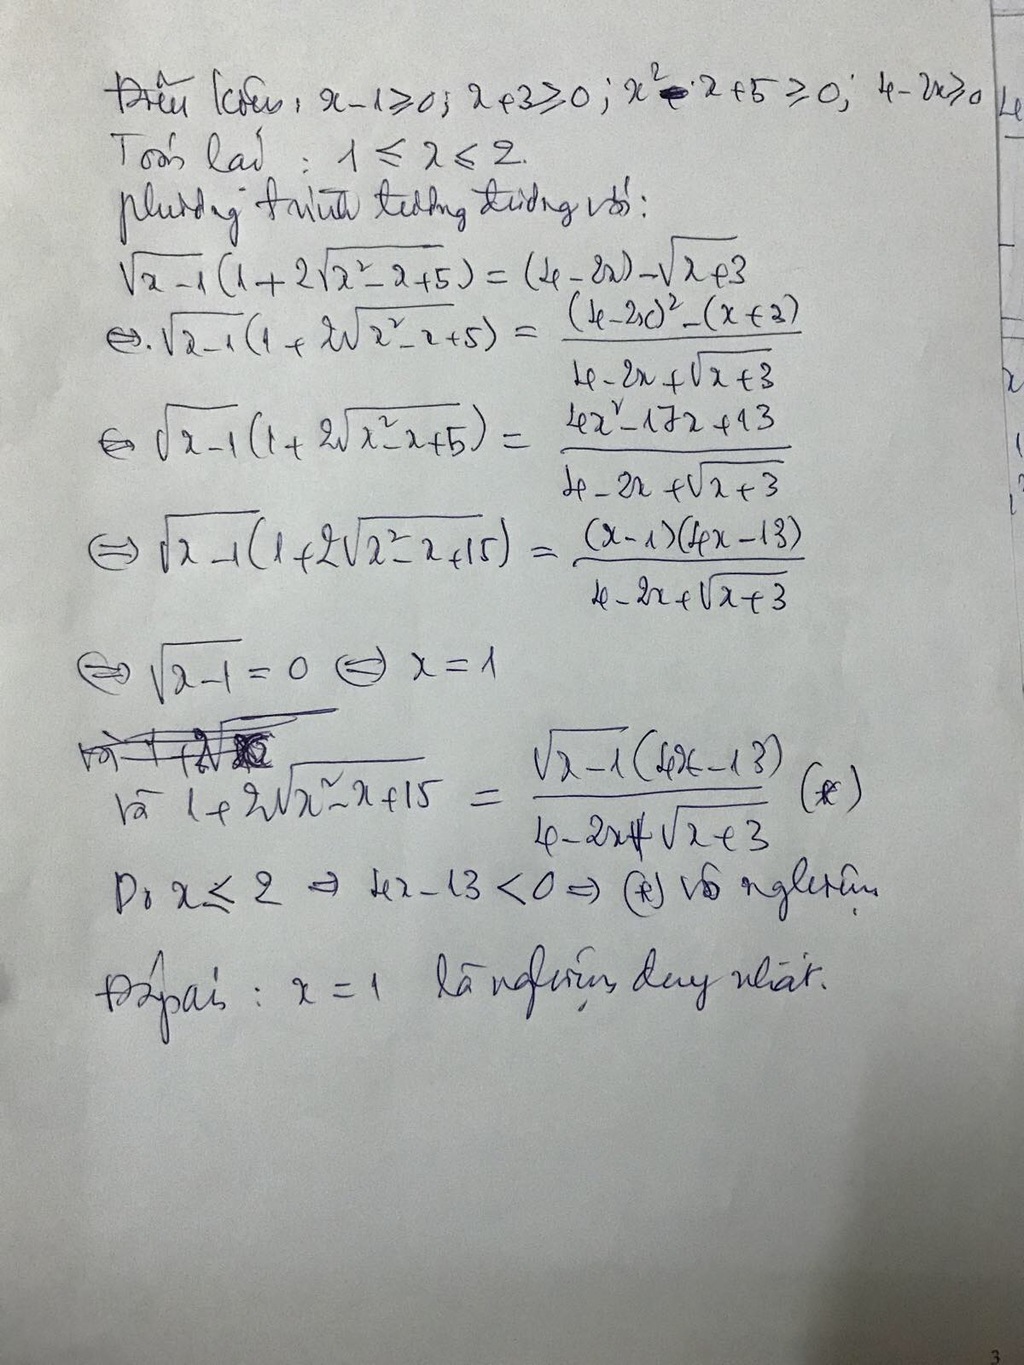 Điều kiện: x-1≥0; x+3≥0; x²-x+5≥0; 4-2x≥0
Tóm lại: 1≤x≤2.
phương trình tương đương với:
√(x-1)(1+2√(x²-x+5)) = (4-2x)-√(x+3)
⇔. √(x-1)(1+2√(x²-x+5)) = ((4-2x)²-(x+3))/(4-2x+√(x+3))
⇔ √(x-1)(1+2√(x²-x+5)) = (4x²-17x+13)/(4-2x+√(x+3))
⇔ √(x-1)(1+2√(x²-x+15)) = ((x-1)(4x-13))/(4-2x+√(x+3))
⇔ √(x-1) = 0 ⇔ x=1
và 1+2√(x²-x+15) = (√(x-1)(4x-13))/(4-2x+√(x+3)) (*)
Do x≤2 ⇒ 4x-13<0 ⇒ (*) vô nghiệm
Đáp án: x=1 là nghiệm duy nhất.
3